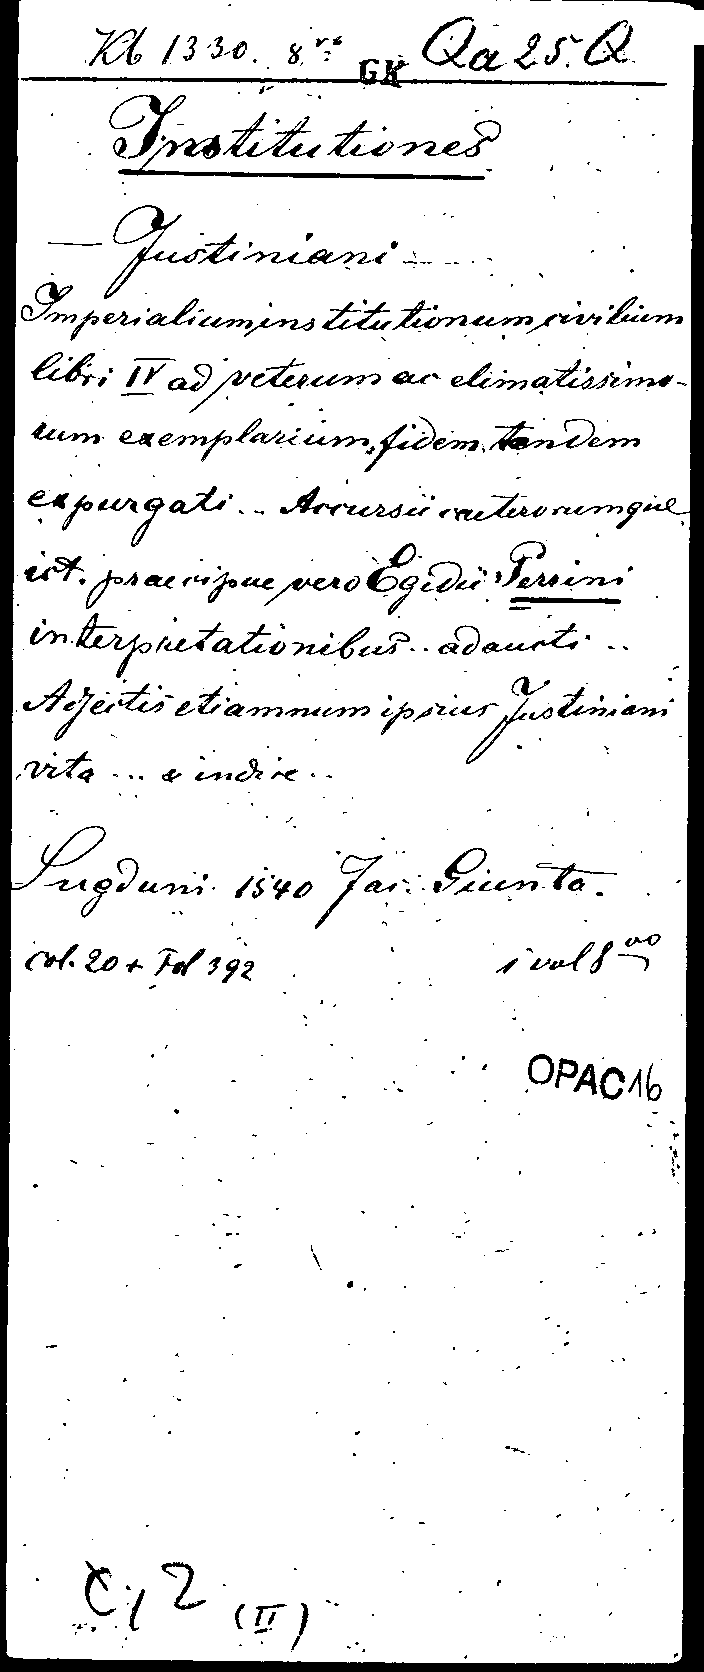 Kb 1330. 8vo GK Qa 25. Q
Institutiones
— Justiniani —
Imperialium institutionum civilium
libri IV ad veterum ac elimatissimo-
rum exemplarium fidem tandem
expurgati .. Accursii caeterorumque
ict. praecipue vero Egidii Perrini
interpretationibus .. adaucti ..
Adjectis etiamnum ipsius Justiniani
vita ... & indice ..
Lugduni 1540 Jac. Giunta.
col. 20 + Fol 392 1 vol 8vo
OPAC 16
C, 2 (II)